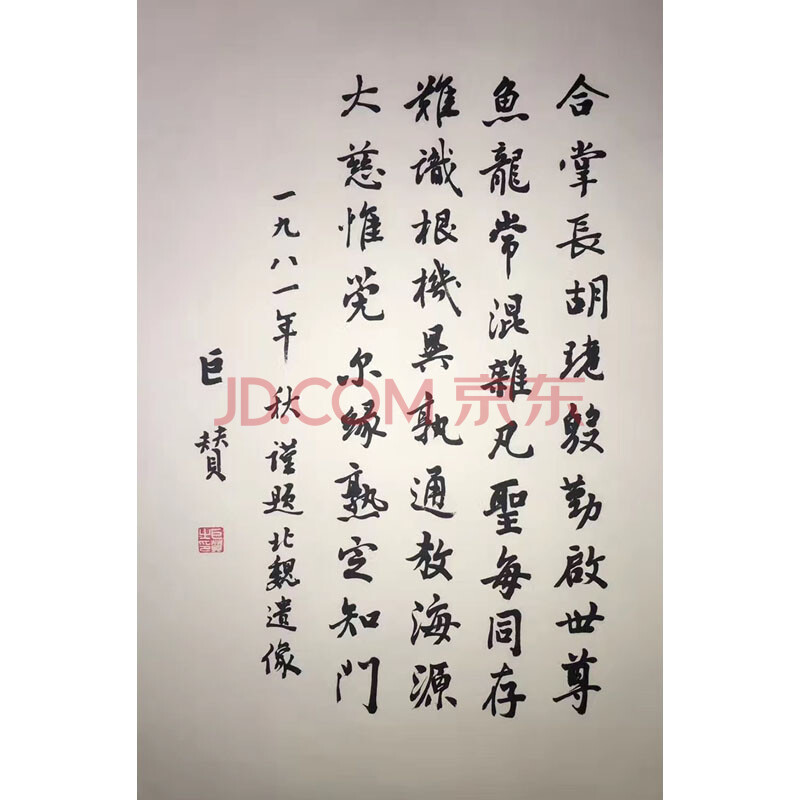 合掌長胡跪殷勤啟世尊
魚龍常混雜凡聖每同存
難識根機異孰通教海源
大慈惟莞尔緣熟定知門
一九八一年秋謹題北魏遺像
巨贊
JD.COM 京东